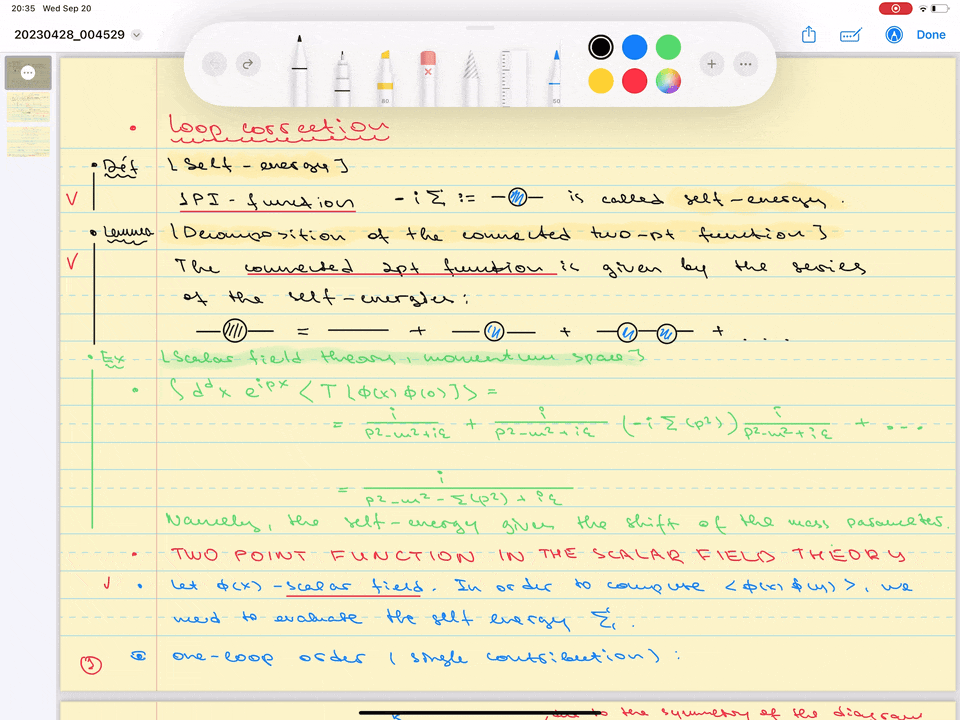 20:35 Wed Sep 20
20230428_004529
Done
80
50
• Loop correction
• Def [Self-energy]
V 1PI-function -iΣ := is called self-energy.
• Lemma [Decomposition of the connected two-pt function]
V The connected 2pt function is given by the series
of the self-energies:
= + + + ...
• Ex [Scalar field theory, momentum space]
• ∫ d^d x e^{ipx} <T[ϕ(x)ϕ(0)]> =
= i/(p²-m²+iε) + i/(p²-m²+iε) (-iΣ(p²)) i/(p²-m²+iε) + ...
= i/(p²-m²-Σ(p²)+iε)
Namely, the self-energy gives the shift of the mass parameter.
• TWO POINT FUNCTION IN THE SCALAR FIELD THEORY
√ • Let ϕ(x) - scalar field. In order to compute <ϕ(x)ϕ(y)>, we
need to evaluate the self energy Σ.
one-loop order (single contribution):
due to the symmetry of the diagram